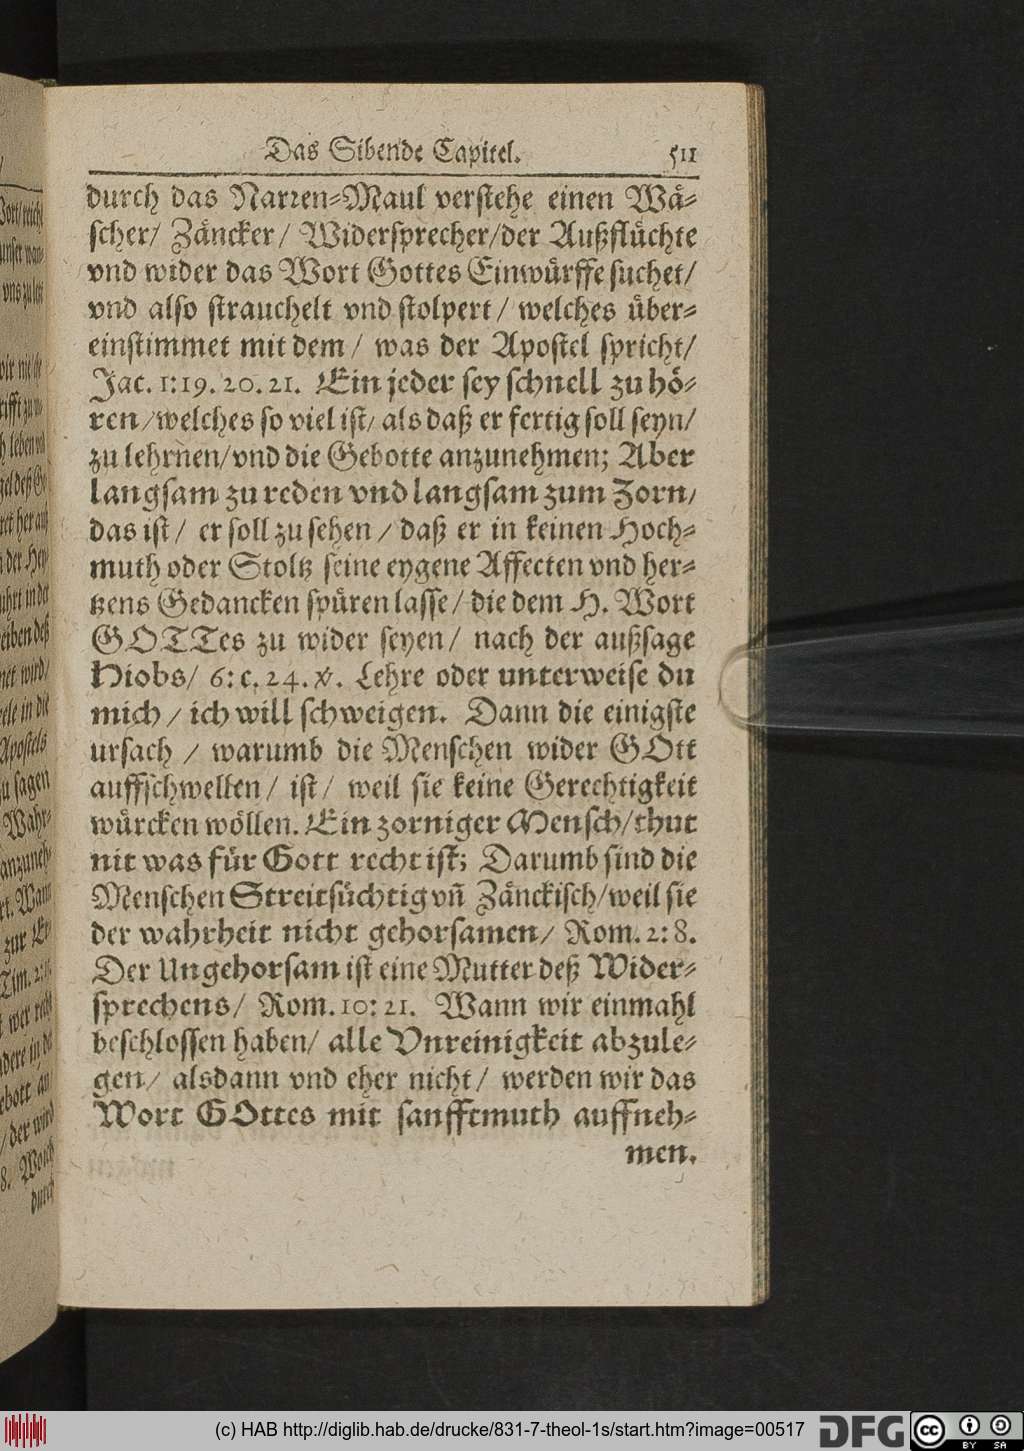 Das Sibende Capitel. 511
durch das Narren-Maul verstehe einen Wä-
scher/ Zäncker/ Widersprecher/der Außflüchte
vnd wider das Wort Gottes Einwürffe suchet/
vnd also strauchelt vnd stolpert/ welches über-
einstimmet mit dem/ was der Apostel spricht/
Jac. 1:19. 20. 21. Ein jeder sey schnell zu hö-
ren/welches so viel ist/ als daß er fertig soll seyn/
zu lehrnen/vnd die Gebotte anzunehmen; Aber
langsam zu reden vnd langsam zum Zorn/
das ist/ er soll zu sehen/ daß er in keinen Hoch-
muth oder Stoltz seine eygene Affecten vnd her-
tzens Gedancken spüren lasse/ die dem H. Wort
GOTTes zu wider seyen/ nach der außsage
Hiobs/ 6: c. 24. ℣. Lehre oder unterweise du
mich/ ich will schweigen. Dann die einigste
ursach/ warumb die Menschen wider GOtt
auffschwellen/ ist/ weil sie keine Gerechtigkeit
würcken wöllen. Ein zorniger Mensch/thut
nit was für Gott recht ist; Darumb sind die
Menschen Streitsüchtig vñ Zänckisch/weil sie
der wahrheit nicht gehorsamen/ Rom. 2:8.
Der Ungehorsam ist eine Mutter deß Wider-
sprechens/ Rom. 10:21. Wann wir einmahl
beschlossen haben/ alle Vnreinigkeit abzule-
gen/ alsdann vnd eher nicht/ werden wir das
Wort GOttes mit sanfftmuth auffneh-
men.
(c) HAB http://diglib.hab.de/drucke/831-7-theol-1s/start.htm?image=00517
DFG
cc BY SA